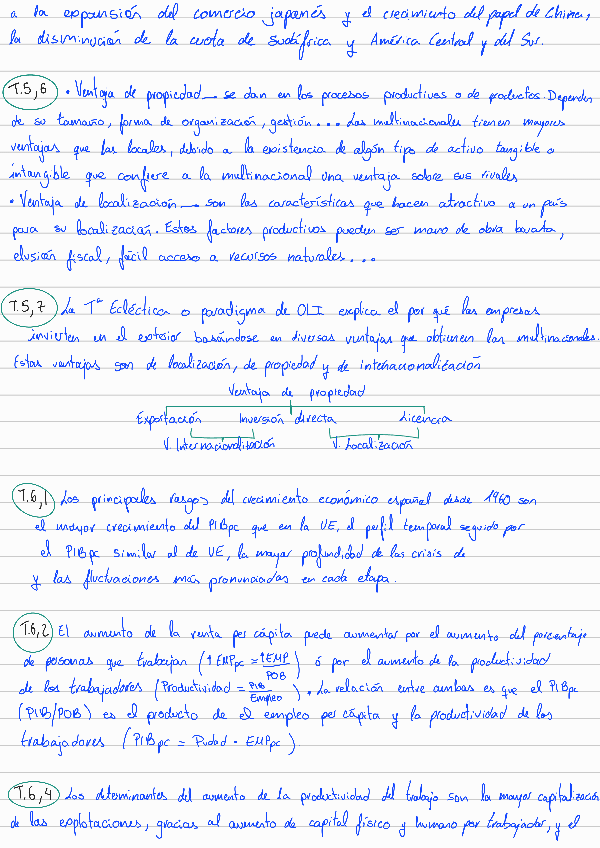 a la expansión del comercio japonés y el crecimiento del papel de China,
la disminución de la cuota de Sudáfrica y América Central y del Sur.
T.5,6 • Ventaja de propiedad → se dan en los procesos productivos o de productos. Dependen
de su tamaño, forma de organización, gestión... Las multinacionales tienen mayores
ventajas que las locales, debido a la existencia de algún tipo de activo tangible o
intangible que confiere a la multinacional una ventaja sobre sus rivales
• Ventaja de localización → son las características que hacen atractivo a un país
para su localización. Estos factores productivos pueden ser mano de obra barata,
elusión fiscal, fácil acceso a recursos naturales...
T.5,7 La Tª Ecléctica o paradigma de OLI explica el por qué las empresas
invierten en el exterior basándose en diversas ventajas que obtienen las multinacionales.
Estas ventajas son de localización, de propiedad y de internacionalización
Ventaja de propiedad
Exportación Inversión directa Licencia
V. Internacionalización V. Localización
T.6,1 Los principales rasgos del crecimiento económico español desde 1960 son
el mayor crecimiento del PIBpc que en la UE, el perfil temporal seguido por
el PIBpc similar al de UE, la mayor profundidad de las crisis de
y las fluctuaciones más pronunciadas en cada etapa.
T.6,2 El aumento de la renta per cápita puede aumentar por el aumento del porcentaje
de personas que trabajan (↑EMPpc = ↑EMP/POB) ó por el aumento de la productividad
de los trabajadores (Productividad = PIB/Empleo). La relación entre ambas es que el PIBpc
(PIB/POB) es el producto de el empleo per cápita y la productividad de los
trabajadores (PIBpc = Pvdad · EMPpc).
T.6,4 Los determinantes del aumento de la productividad del trabajo son la mayor capitalización
de las explotaciones, gracias al aumento de capital físico y humano por trabajador, y el